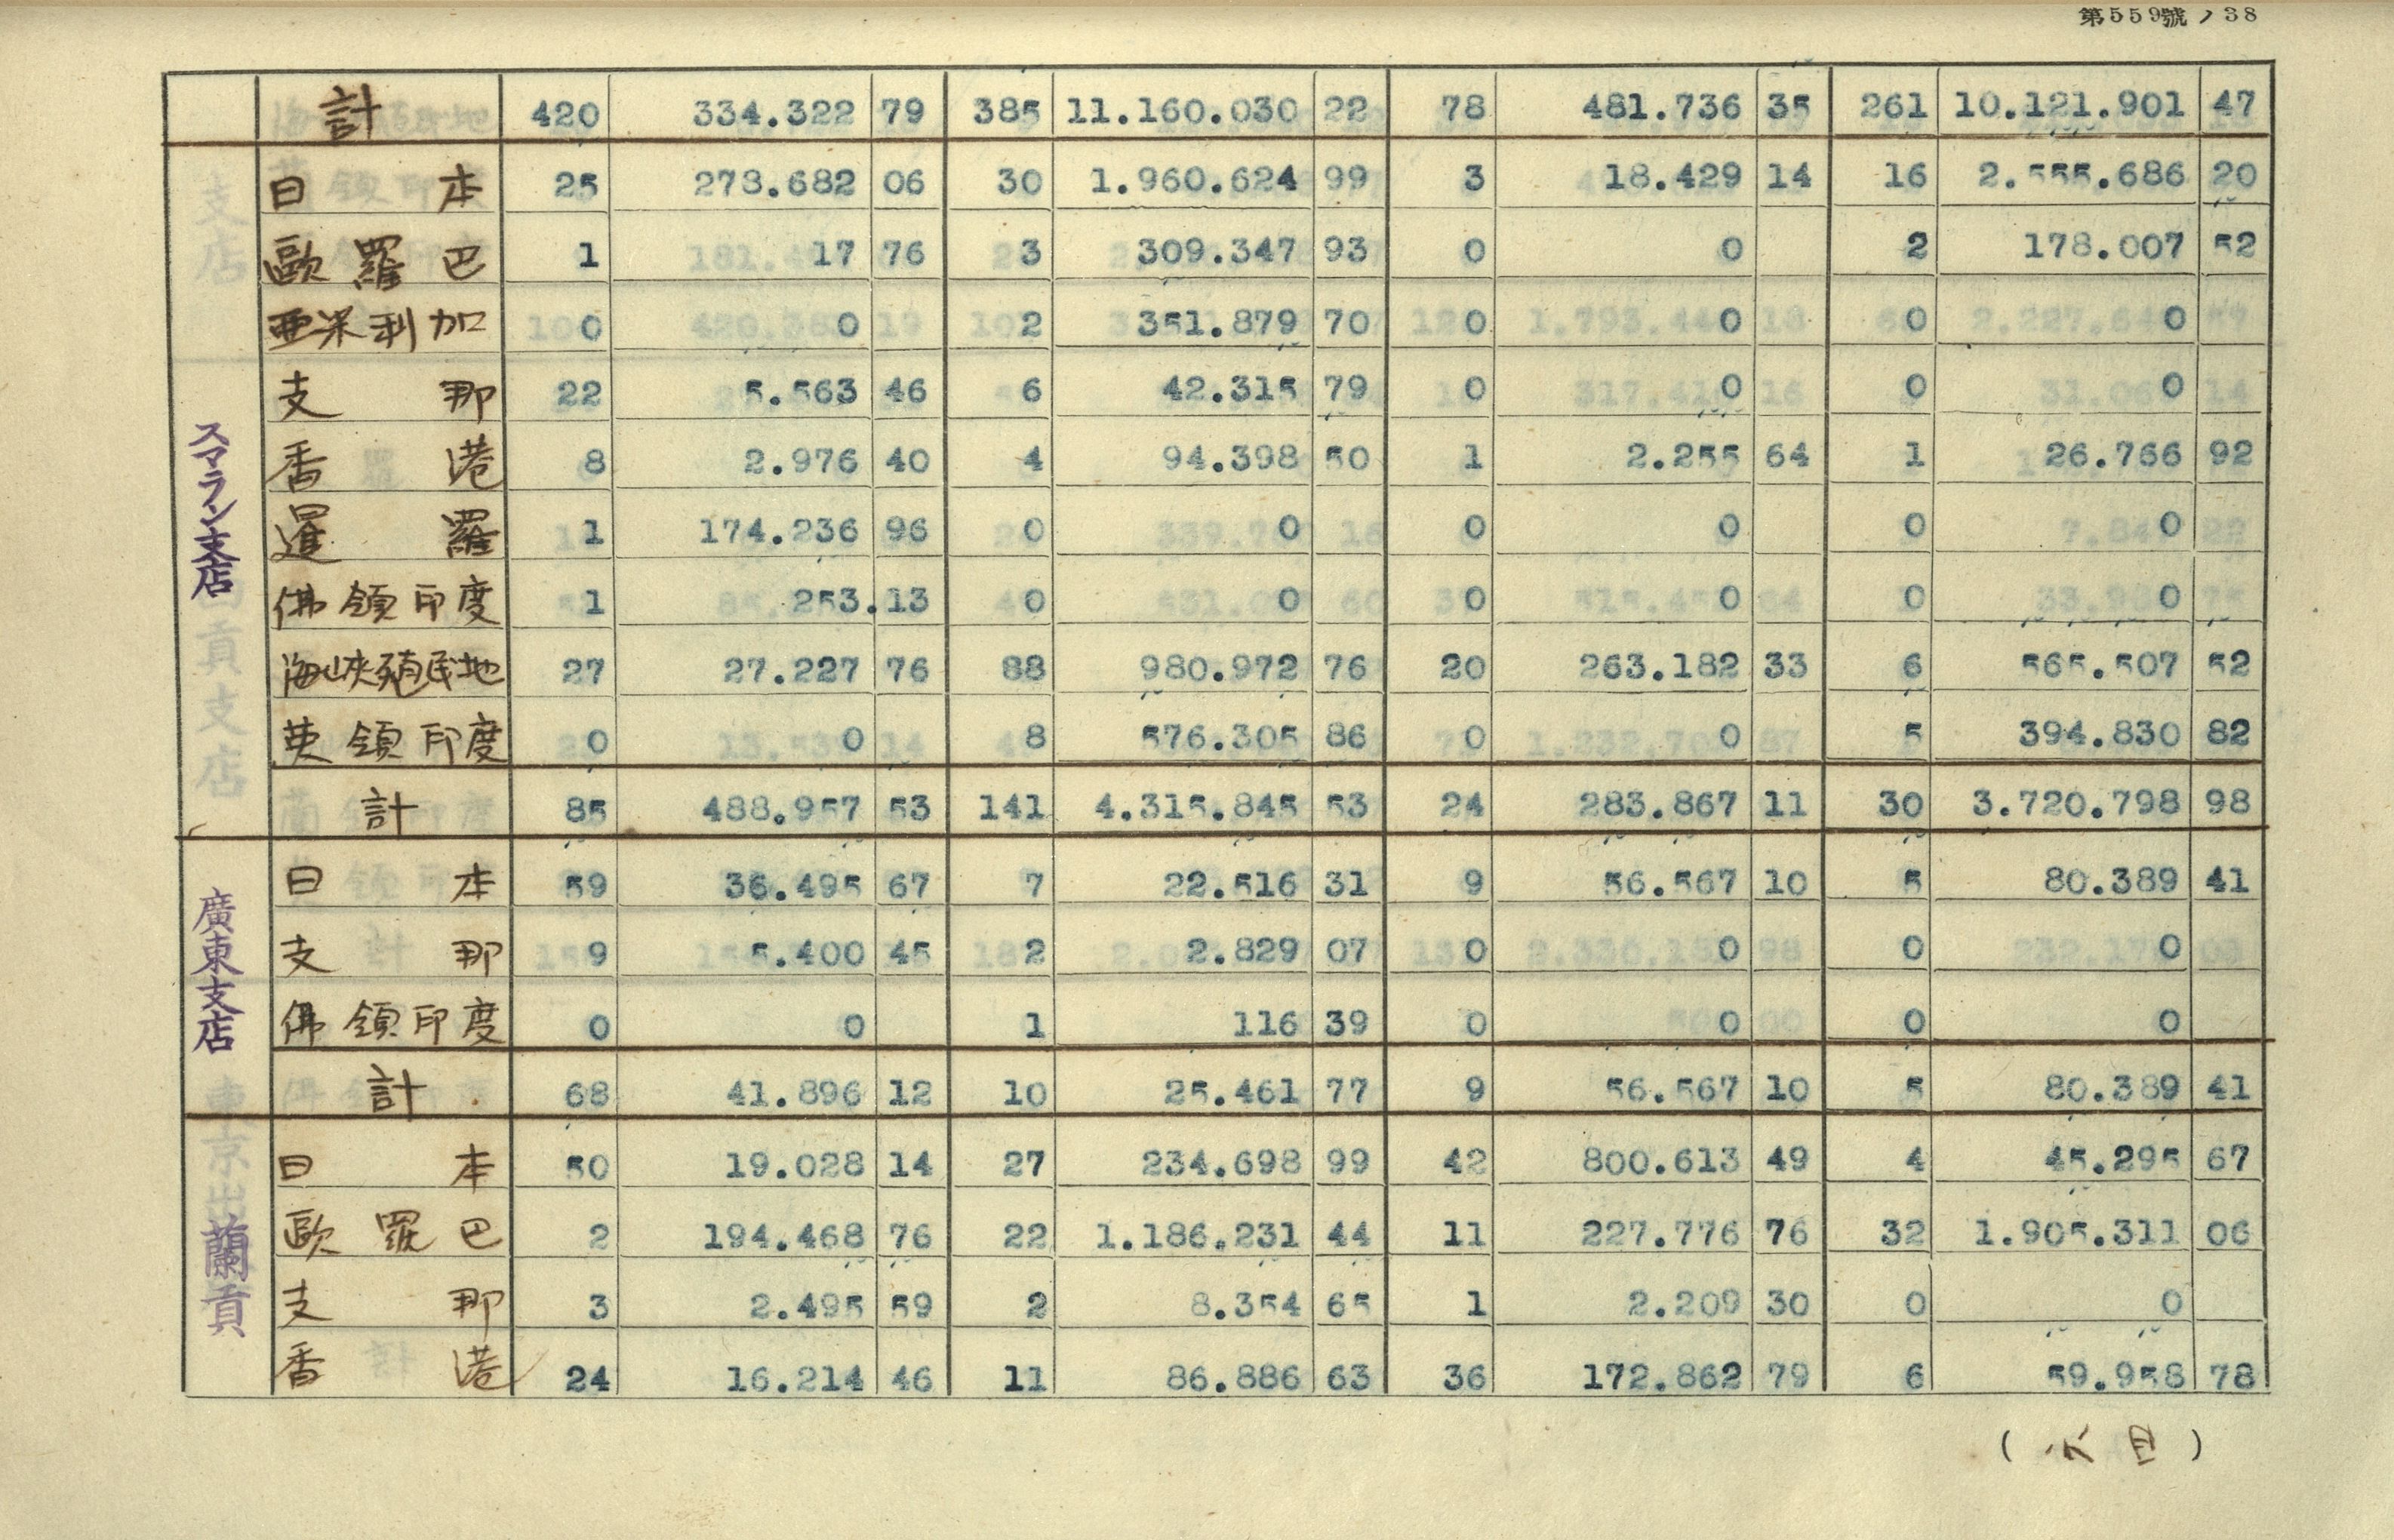 第559號ノ38
計 420 334.322 79 385 11.160.030 22 78 481.736 35 261 10.121.901 47
スマラン支店
日本 25 278.682 06 30 1.960.624 99 3 18.429 14 16 2.555.686 20
歐羅巴 1 17 76 3 309.347 93 0 0 2 178.007 52
亜米利加 0 0 2 351.879 70 0 0 0 0
支那 22 5.563 46 6 42.315 79 0 0 0 0
香港 8 2.976 40 4 94.398 50 1 2.255 64 1 26.766 92
暹羅 1 174.236 96 0 0 0 0 0 0
佛領印度 1 253.13 0 0 0 0 0 0
海峡殖民地 27 27.227 76 88 980.972 76 20 263.182 33 6 565.507 52
英領印度 0 0 8 576.305 86 0 0 5 394.830 82
計 85 488.957 53 141 4.315.845 53 24 283.867 11 30 3.720.798 98
廣東支店
日本 59 36.495 67 7 22.516 31 9 56.567 10 5 80.389 41
支那 9 5.400 45 2 2.829 07 0 0 0 0
佛領印度 0 0 1 116 39 0 0 0 0
計 68 41.896 12 10 25.461 77 9 56.567 10 5 80.389 41
蘭貢
日本 50 19.028 14 27 234.698 99 42 800.613 49 4 45.295 67
歐羅巴 2 194.468 76 22 1.186.231 44 11 227.776 76 32 1.905.311 06
支那 3 2.495 59 2 8.354 65 1 2.209 30 0 0
香港 24 16.214 46 11 86.886 63 36 172.862 79 6 59.958 78